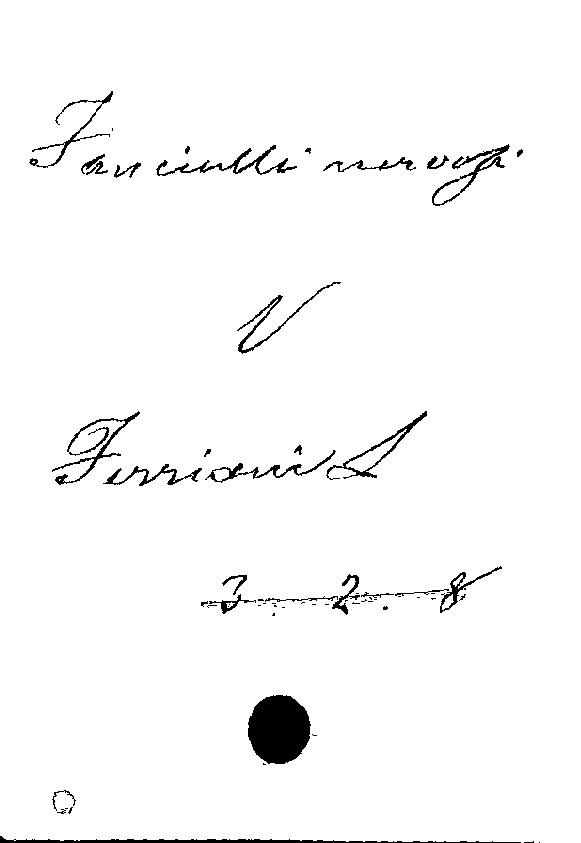 Fanciulli nervosi
V
Ferriani L
3. 2. 8